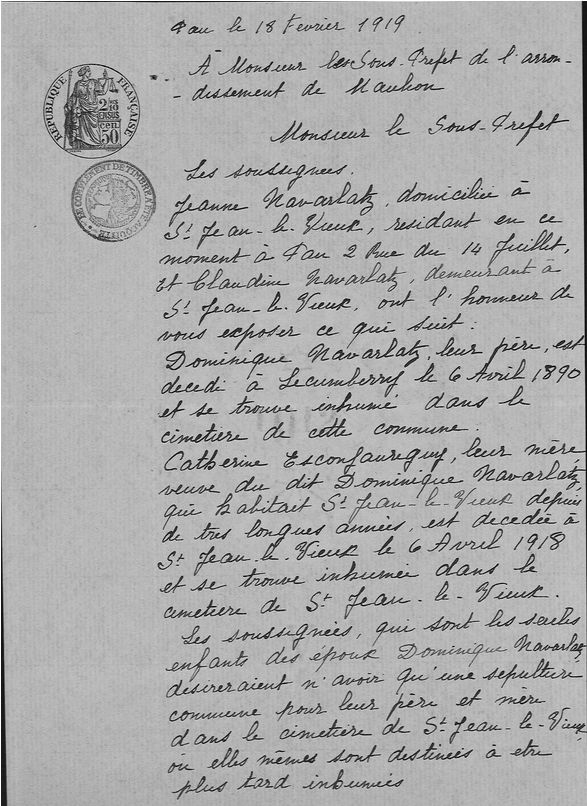 Pau le 18 Fevrier 1919
À Monsieur le Sous-Prefet de l'arron-
-dissement de Mauléon
Monsieur le Sous-Prefet
RÉPUBLIQUE FRANÇAISE
2/10 EN SUS
50 cen.
LE COMPLEMENT DE TIMBRE A ETE ACQUITTE
Les soussignées.
Jeanne Navarlatz, domiciliée à
St Jean-le-Vieux, résidant en ce
moment à Pau 2 Rue du 14 Juillet,
Et Claudine Navarlatz, demeurant à
St Jean-le-Vieux, ont l'honneur de
vous exposer ce qui suit :
Dominique Navarlatz, leur père, est
decedé à Lecumberry le 6 Avril 1890
et se trouve inhumé dans le
cimetiere de cette commune.
Catherine Esconjaureguy, leur mère
veuve du dit Dominique Navarlatz,
qui habitait St Jean-le-Vieux depuis
de tres longues années, est decedée à
St Jean-le-Vieux le 6 Avril 1918
et se trouve inhumée dans le
cimetiere de St Jean-le-Vieux.
Les soussignées, qui sont les seules
enfants des époux Dominique Navarlatz,
desireraient n'avoir qu'une sepulture
commune pour leur père et mère
dans le cimetiere de St Jean-le-Vieux,
où elles mêmes sont destinées à etre
plus tard inhumées